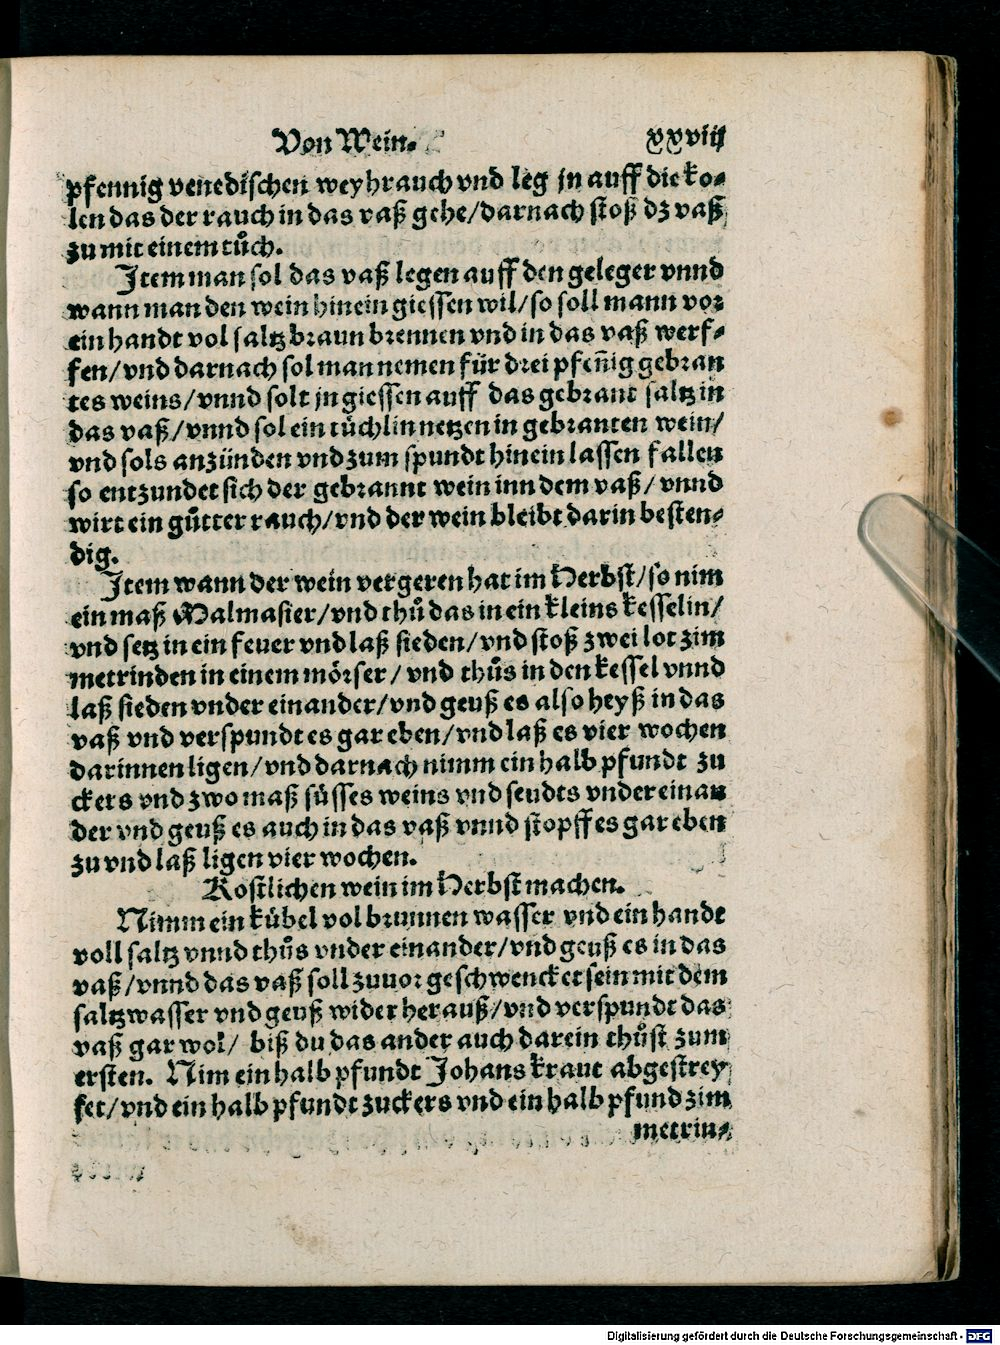 Von Wein. xxviij
pfennig venedischen weyhrauch vnd leg jn auff die ko⸗
len das der rauch in das vaß gehe/darnach stoß dz vaß
zu mit einem tůch.
Item man sol das vaß legen auff den geleger vnnd
wann man den wein hinein giessen wil/so soll mann vor
ein handt vol saltz braun brennen vnd in das vaß werf⸗
fen/vnd darnach sol man nemen für drei pfen̄ig gebran
tes weins/vnnd solt jn giessen auff das gebrant saltz in
das vaß/vnnd sol ein tůchlin netzen in gebranten wein/
vnd sols anzünden vnd zum spundt hinein lassen fallen
so entzundet sich der gebrannt wein inn dem vaß/vnnd
wirt ein gůtter rauch/vnd der wein bleibt darin besten⸗
dig.
Item wann der wein vergeren hat im Herbst/so nim
ein maß Malmasier/vnd thů das in ein kleins kesselin/
vnd setz in ein feuer vnd laß sieden/vnd stoß zwei lot zim
metrinden in einem mörser/vnd thůs in den kessel vnnd
laß sieden vnder einander/vnd geuß es also heyß in das
vaß vnd verspundt es gar eben/vnd laß es vier wochen
darinnen ligen/vnd darnach nimm ein halb pfundt zu
ckers vnd zwo maß süsses weins vnd seudts vnder einan
der vnd geuß es auch in das vaß vnnd stopff es gar eben
zu vnd laß ligen vier wochen.
Kostlichen wein im Herbst machen.
Nimm ein kübel vol brunnen wasser vnd ein handt
voll saltz vnnd thůs vnder einander/vnd geuß es in das
vaß/vnnd das vaß soll zuuor geschwencket sein mit dem
saltzwasser vnd geuß wider herauß/vnd verspundt das
vaß gar wol/ biß du das ander auch darein thůst zum
ersten. Nim ein halb pfundt Johans kraut abgestrey
fet/vnd ein halb pfundt zuckers vnd ein halb pfund zim
metrin⸗
Digitalisierung gefördert durch die Deutsche Forschungsgemeinschaft - DFG